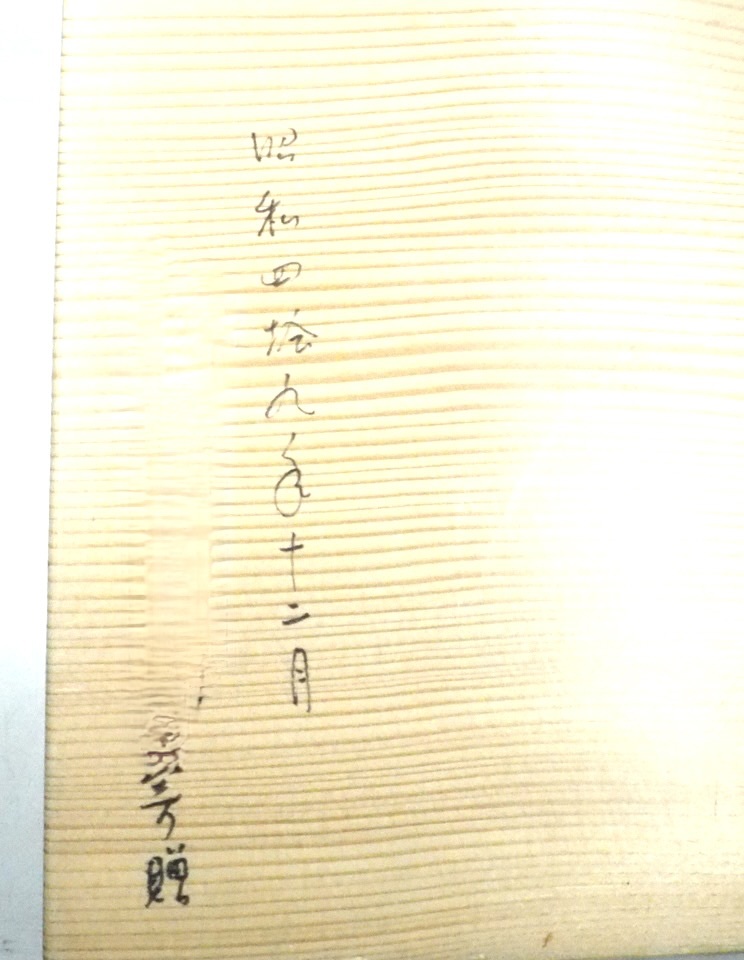 昭和四拾九年十二月
贈